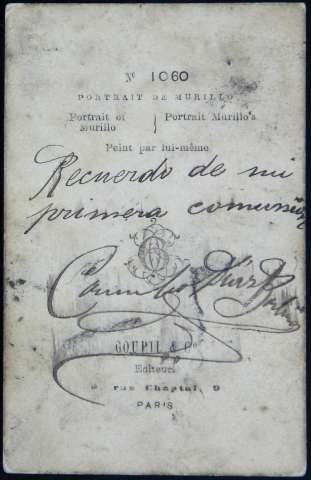 Nº 1060
PORTRAIT DE MURILLO
Portrait of Murillo } Portrait Murillo's
Peint par lui-même
Recuerdo de mi
primera comunión
GOUPIL & Cº
Editeurs
9 rue Chaptal, 9
PARIS